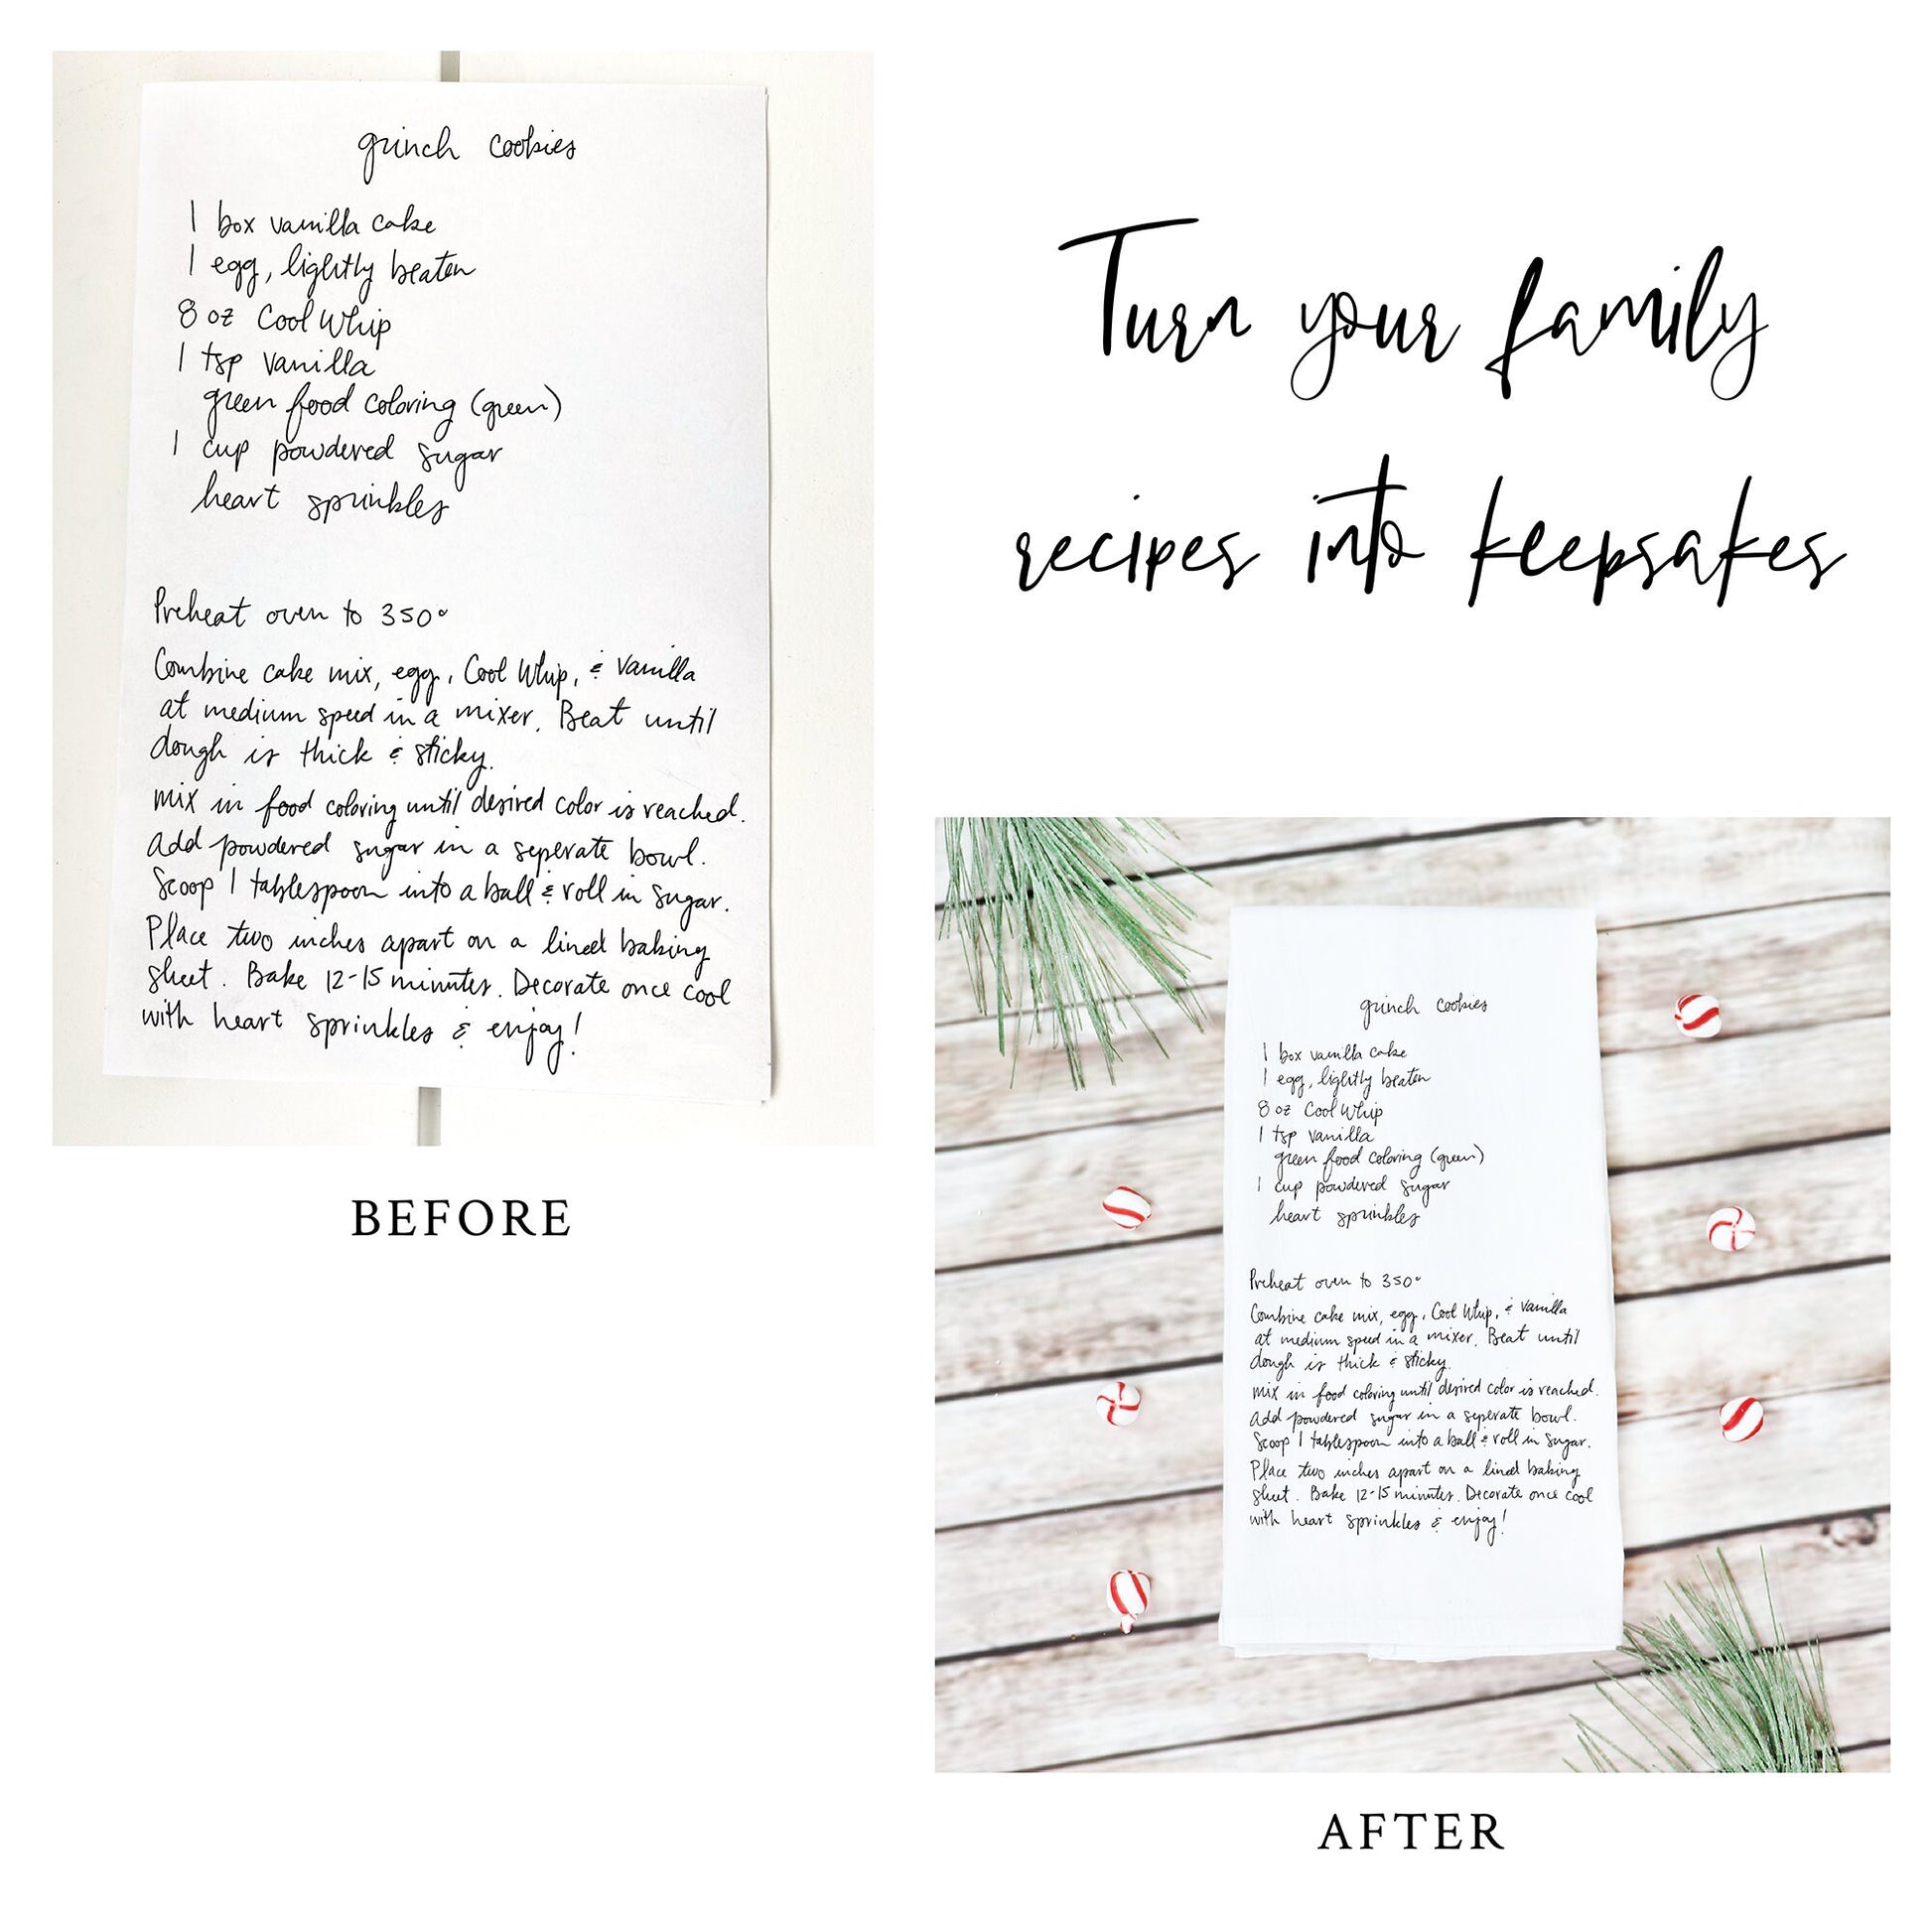 grinch cookies
1 box vanilla cake
1 egg, lightly beaten
8 oz Cool Whip
1 tsp vanilla
green food coloring (green)
1 cup powdered sugar
heart sprinkles
Preheat oven to 350°
Combine cake mix, egg, Cool Whip, & vanilla
at medium speed in a mixer. Beat until
dough is thick & sticky.
mix in food coloring until desired color is reached.
Add powdered sugar in a seperate bowl.
Scoop 1 tablespoon into a ball & roll in sugar.
Place two inches apart on a lined baking
sheet. Bake 12-15 minutes. Decorate once cool
with heart sprinkles & enjoy!
BEFORE
Turn your family
recipes into keepsakes
grinch cookies
1 box vanilla cake
1 egg, lightly beaten
8 oz Cool Whip
1 tsp vanilla
green food coloring (green)
1 cup powdered sugar
heart sprinkles
Preheat oven to 350°
Combine cake mix, egg, Cool Whip, & vanilla
at medium speed in a mixer. Beat until
dough is thick & sticky.
mix in food coloring until desired color is reached.
Add powdered sugar in a seperate bowl.
Scoop 1 tablespoon into a ball & roll in sugar.
Place two inches apart on a lined baking
sheet. Bake 12-15 minutes. Decorate once cool
with heart sprinkles & enjoy!
AFTER